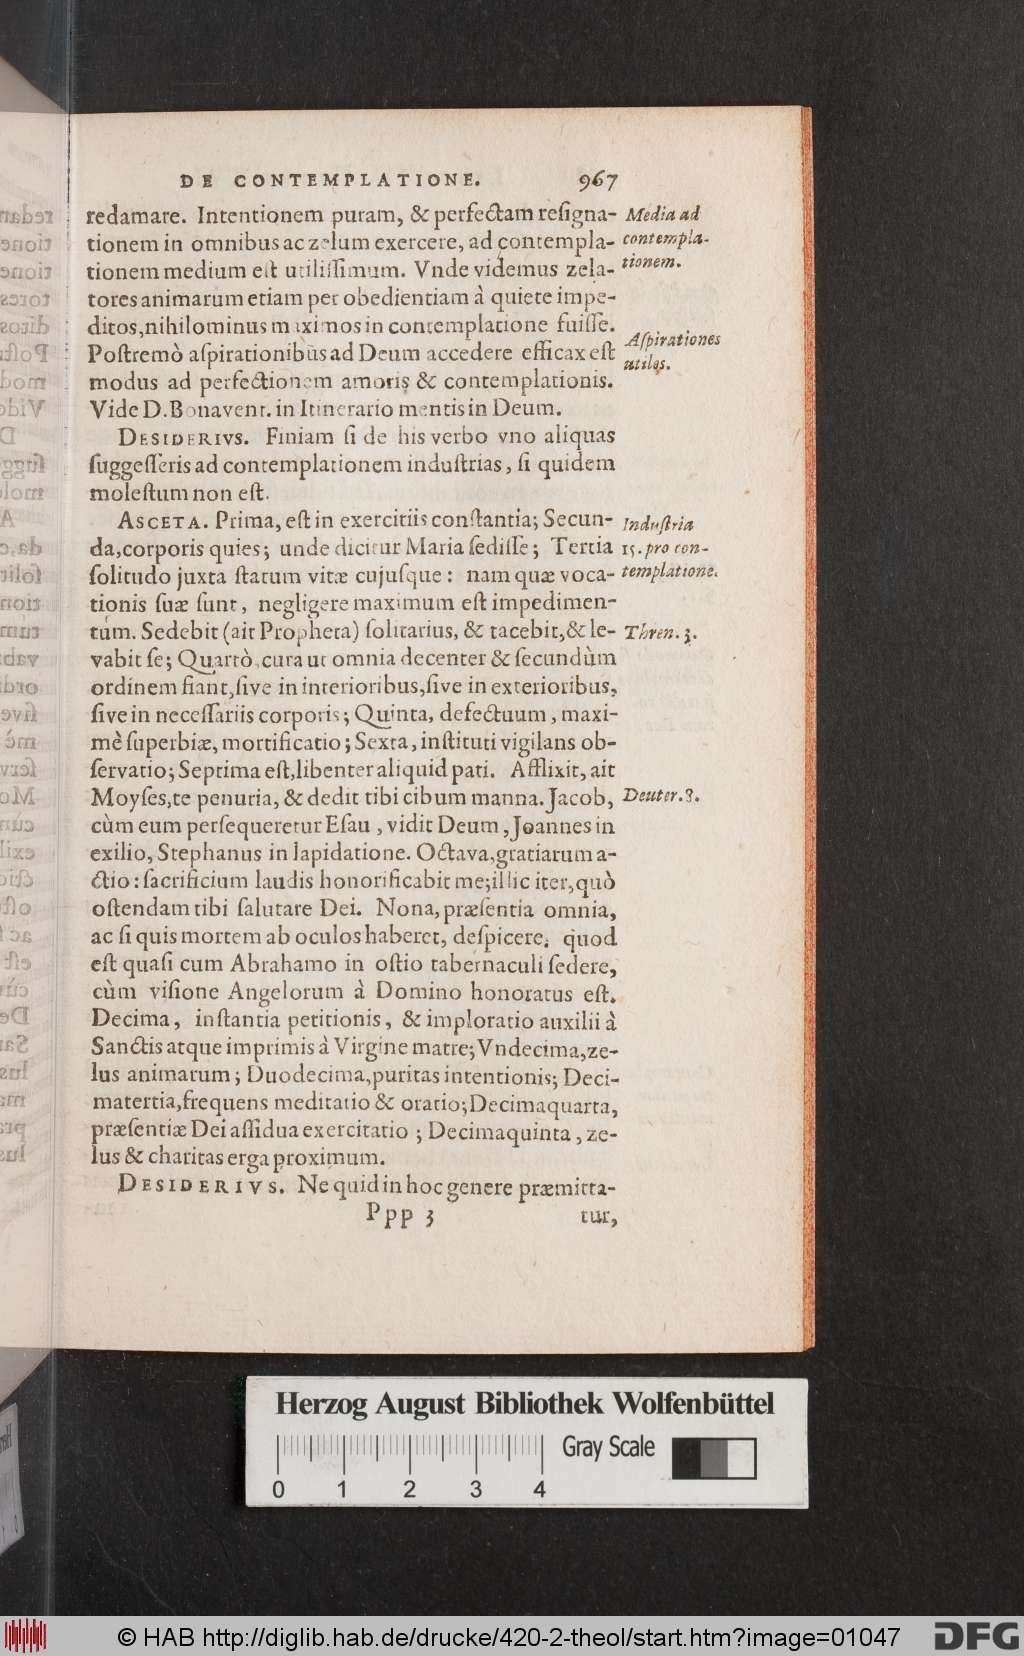 DE CONTEMPLATIONE. 967
redamare. Intentionem puram, & perfectam reſigna-
tionem in omnibus ac zelum exercere, ad contempla-
tionem medium eſt utiliſſimum. Vnde videmus zela-
tores animarum etiam per obedientiam à quiete impe-
ditos, nihilominus maximos in contemplatione fuiſſe.
Poſtremò aſpirationibus ad Deum accedere efficax eſt
modus ad perfectionem amoris & contemplationis.
Vide D. Bonavent. in Itinerario mentis in Deum.
DESIDERIVS. Finiam ſi de his verbo vno aliquas
ſuggeſſeris ad contemplationem induſtrias, ſi quidem
moleſtum non eſt.
ASCETA. Prima, eſt in exercitiis conſtantia; Secun-
da, corporis quies; unde dicitur Maria ſediſſe; Tertia
ſolitudo juxta ſtatum vitæ cujuſque: nam quæ voca-
tionis ſuæ ſunt, negligere maximum eſt impedimen-
tum. Sedebit (ait Propheta) ſolitarius, & tacebit, & le-
vabit ſe; Quartò, cura ut omnia decenter & ſecundùm
ordinem fiant, ſive in interioribus, ſive in exterioribus,
ſive in neceſſariis corporis; Quinta, defectuum, maxi-
mè ſuperbiæ, mortificatio; Sexta, inſtituti vigilans ob-
ſervatio; Septima eſt, libenter aliquid pati. Afflixit, ait
Moyſes, te penuria, & dedit tibi cibum manna. Jacob,
cùm eum perſequeretur Eſau, vidit Deum, Joannes in
exilio, Stephanus in lapidatione. Octava, gratiarum a-
ctio: ſacrificium laudis honorificabit me; illic iter, quò
oſtendam tibi ſalutare Dei. Nona, præſentia omnia,
ac ſi quis mortem ab oculos haberet, deſpicere; quod
eſt quaſi cum Abrahamo in oſtio tabernaculi ſedere,
cùm viſione Angelorum à Domino honoratus eſt.
Decima, inſtantia petitionis, & imploratio auxilii à
Sanctis atque imprimis à Virgine matre; Vndecima, ze-
lus animarum; Duodecima, puritas intentionis; Deci-
matertia, frequens meditatio & oratio; Decimaquarta,
præſentiæ Dei aſſidua exercitatio; Decimaquinta, ze-
lus & charitas erga proximum.
DESIDERIVS. Ne quid in hoc genere præmitta-
Ppp 3 tur,
Media ad
contempla-
tionem.
Aſpirationes
utiles.
Induſtria
15. pro con-
templatione.
Thren. 3.
Deuter. 8.
Herzog August Bibliothek Wolfenbüttel
Gray Scale
0 1 2 3 4
© HAB http://diglib.hab.de/drucke/420-2-theol/start.htm?image=01047
DFG